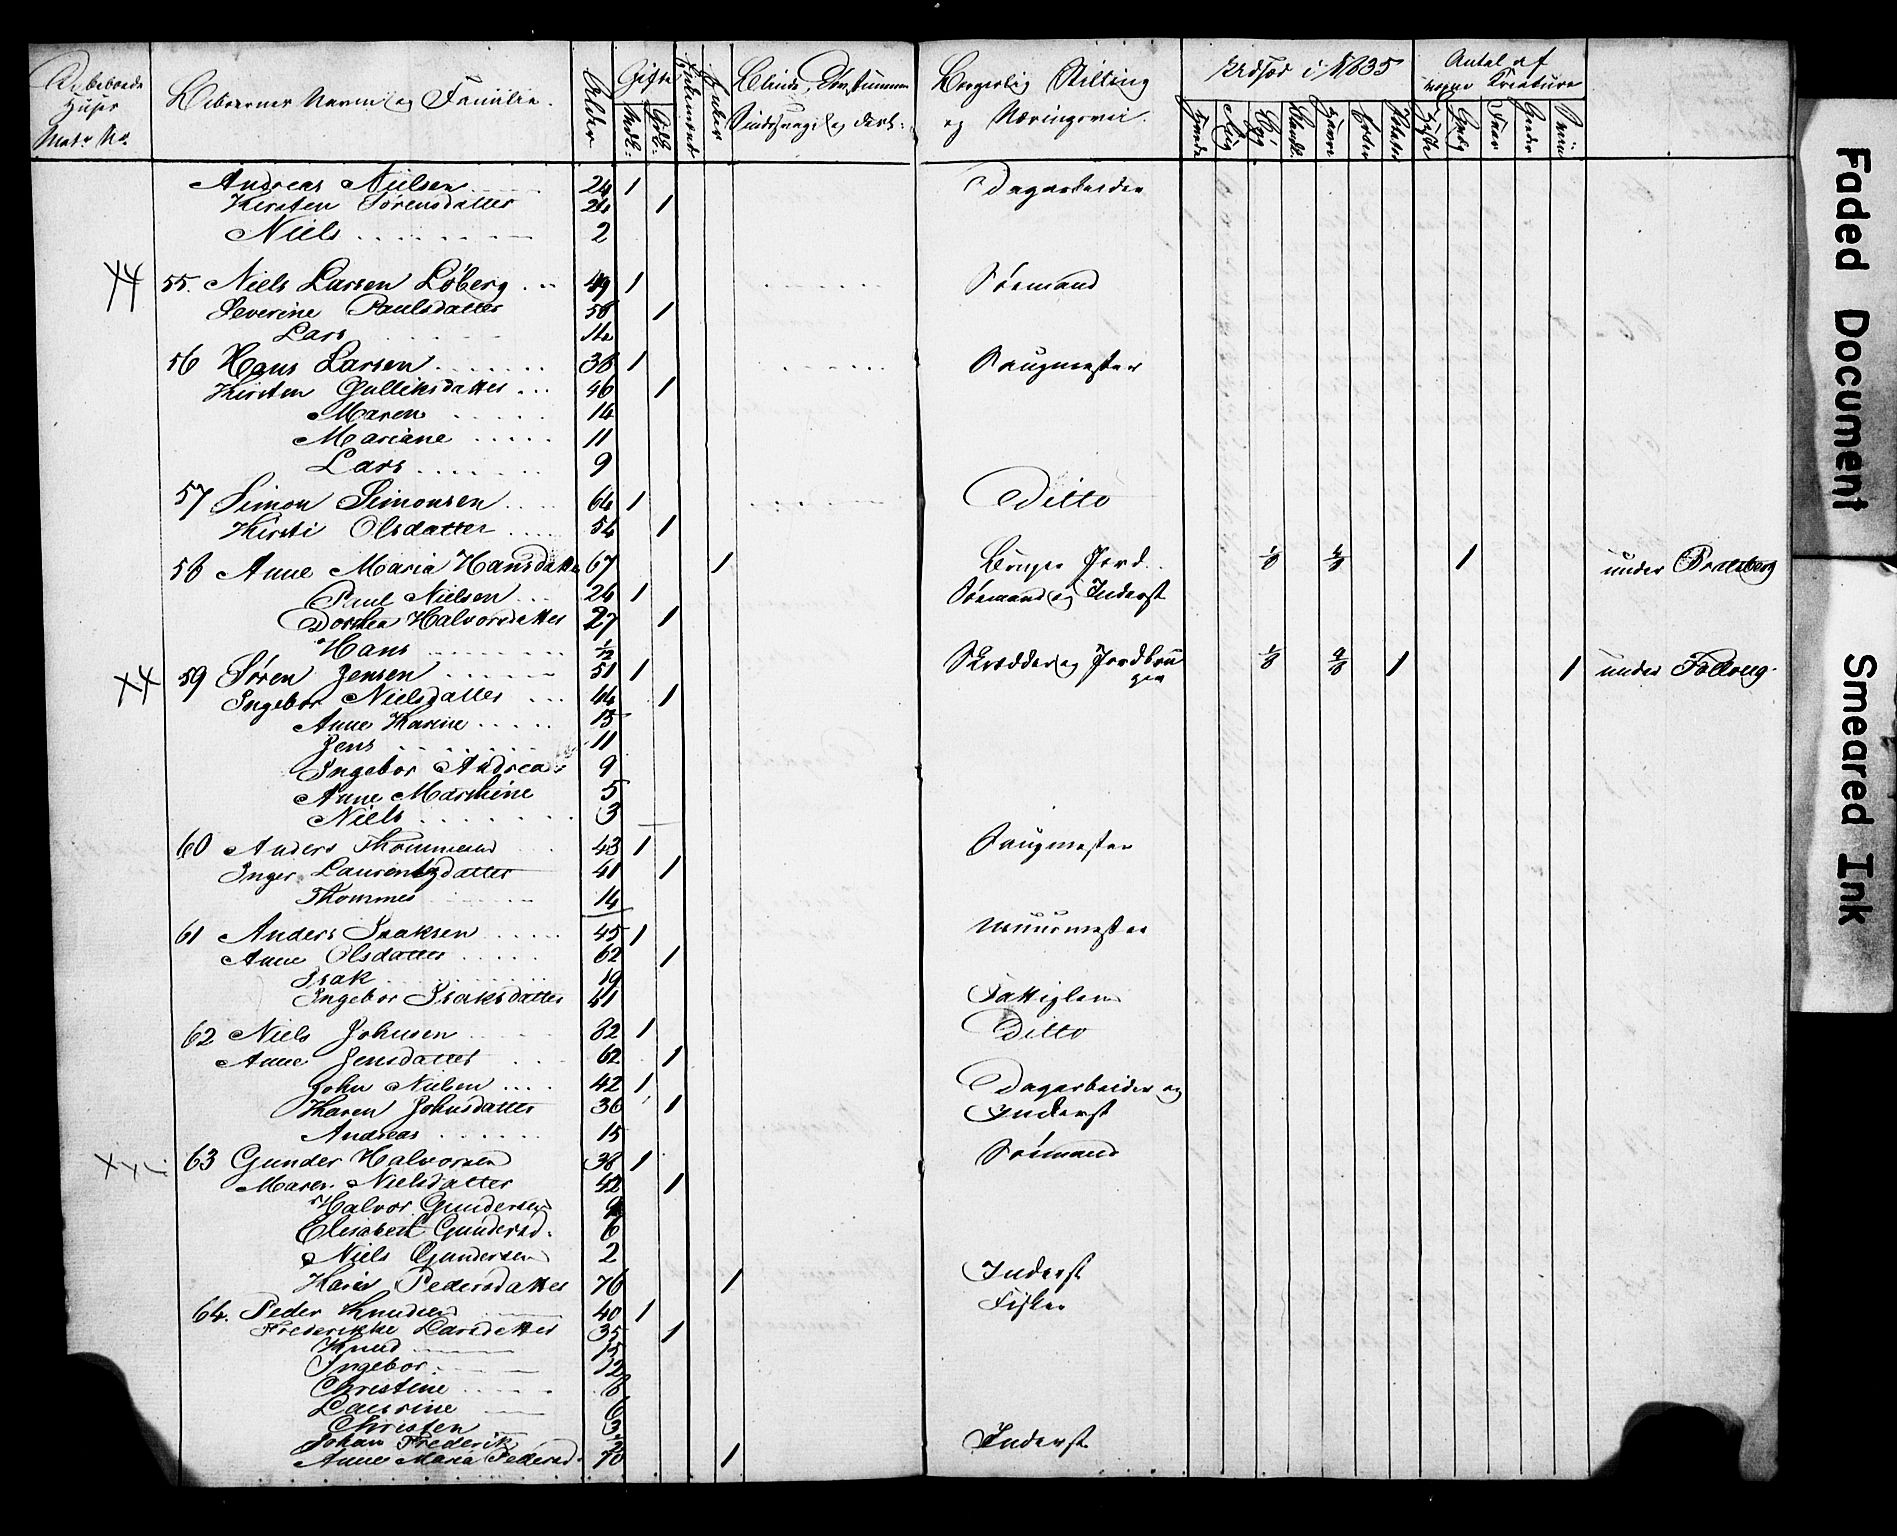 Bebeboede Huse Matr No. Beboernes Navne og Familie. Alder Gifte Mdk: Qdk: Enker Blinde, Døvstumme Sindssvage og deres: Borgerlig Stilling og Næringsvei. Udsæd i 1835 Hvede Rug Byg Bland: Havre Erter Potet: Antal af Kreature Heste Qvæg Faar Geder Sviin
Andreas Nielsen 24 1 Dagarbeider
Kirsten Sørensdatter 24 1
Niels 2
55. Niels Larsen Løberg 49 1 Søemand
Severine Paulsdatter 58 1
Lars 14
56 Hans Larsen 38 1 Saugmester
Kirsten Gulliksdatter 46 1
Maren 14
Mariane 11
Lars 9
57 Simon Simonsen 64 1 Ditto
Kirsti Olsdatter 54 1
58 Anne Maria Hansdatter 67 1 Bruger Jord 1/8 4/8 1 under
Paul Nielsen 26 1 Søemand og Inderst
Dorthea Halvorsdatter 27 1
Hans 1/12
59 Søren Jensen 51 1 Skrædder og Jordbruger 1/8 1 1 under
Ingebor Nielsdatter 44 1
Anne Karine 15
Jens 11
Ingebor Andrea 9
Anne Marthine 5
Niels 3
60 Anders Thommesen 43 1 Saugmester
Inger Laurentzdatter 41 1
Thommes 14
61 Anders Isaksen 45 1 Muurmester
Anne Olsdatter 62 1
Isak 19
Ingebor Isaksdatter 41 Fattiglem
62 Niels Johnsen 82 1 Ditto
Anne Jensdatter 62 1
John Nielsen 42 1 Dagarbeider og
Karen Johnsdatter 36 1 Inderst
Andreas 15
63 Gunder Halvorsen 38 1 Søemand
Maren Nielsdatter 42 1
Halvor Gundersen 9
Elisabeth Gundersd. 6
Niels Gundersen 2
Karen Pedersdatter 76 1 Inderst
64. Peder Knudsen 40 1 Fisker
Frederikke Larsdatter 35 1
Knud 15
Ingebor 12
Christine 8
Laurine 6
Christen 3
Johan Frederik
Anne Maria Pedersd. 70 1 Inderst
Faded Document
Smeared Ink